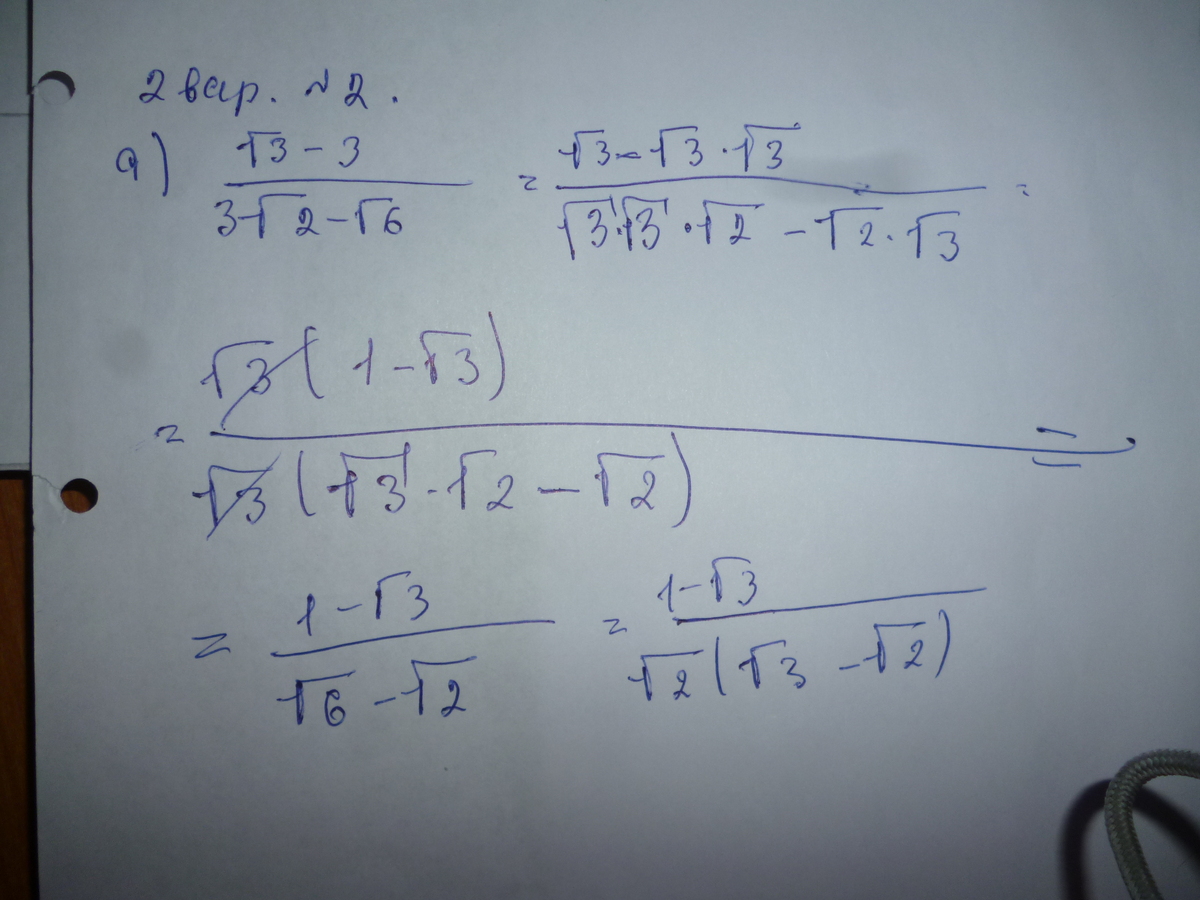 2 вар. №2.
а) (√3 - 3)/(3√2 - √6) = (√3 - √3 · √3)/(√3 · √3 · √2 - √2 · √3) =
= (√3 (1 - √3))/(√3 (√3 · √2 - √2)) =
= (1 - √3)/(√6 - √2) = (1 - √3)/(√2 (√3 - √2))